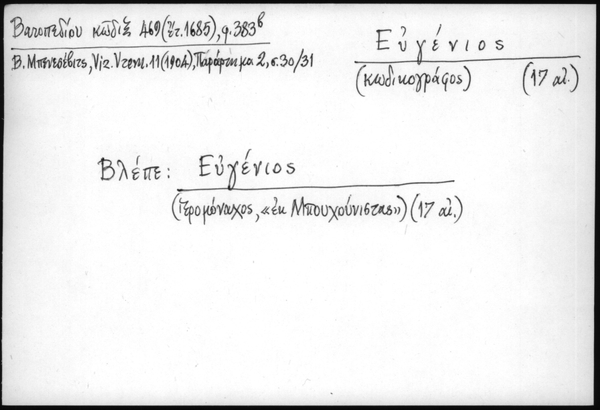 Βατοπεδίου κῶδιξ 469 (ἔτ. 1685), φ. 383β
Β. Μπενεσέβιτς, Viz. Vrem. 11 (1904), Παράρτημα 2, σ. 30/31
Εὐγένιος
(κωδικογράφος) (17 αἰ.)
Βλέπε: Εὐγένιος
(Ἱερομόναχος, «ἐκ Μπουχούνιστας») (17 αἰ.)